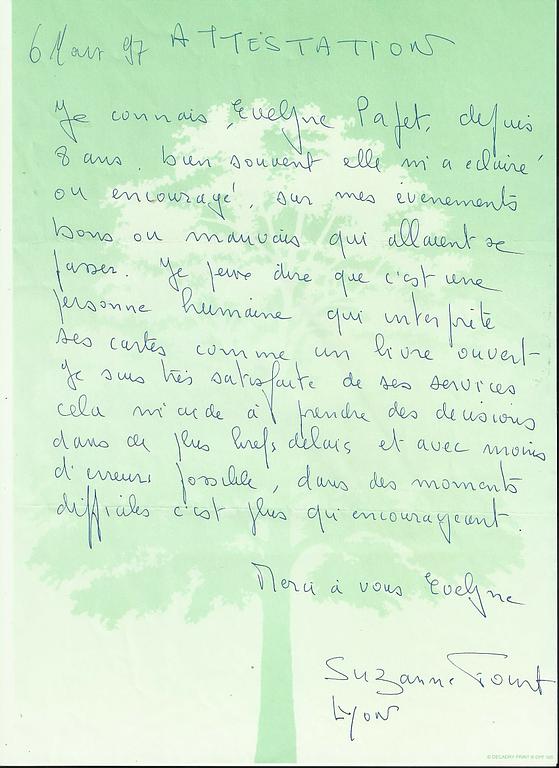 6 Mars 97 ATTESTATION
Je connais, Evelyne Pafet, depuis
8 ans. bien souvent elle m'a éclairé
ou encouragé, sur mes évenements
bons ou mauvais qui allaient se
passer. Je peux dire que c'est une
personne humaine qui interprète
ses cartes comme un livre ouvert-
Je suis très satisfaite de ses services
cela m'aide à prendre des decisions
dans de plus brefs délais et avec moins
d'erreurs possible, dans des moments
difficiles c'est plus qu'encourageant.
Merci à vous Evelyne
Suzanne
Lyon
© DECADRY PRINT